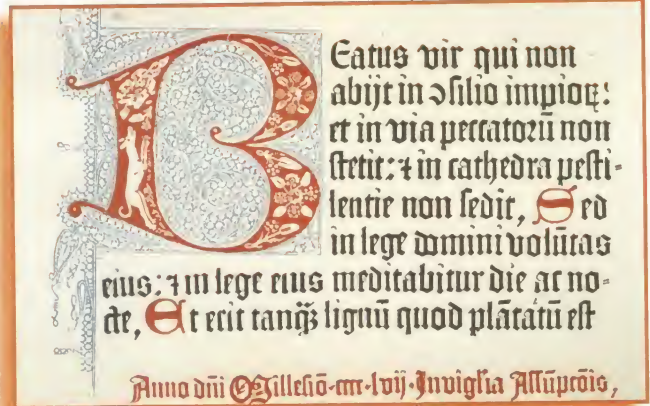 BEatus vir qui non
abijt in ↄsilio impioꝝ:
et in via peccatorū non
stetit: ⁊ in cathedra pesti-
lentie non sedit, Sed
in lege domini volūtas
eius: ⁊ in lege eius meditabitur die ac no-
cte, Et erit tanqꝫ lignū quod plātatū est
Anno dn̄i Millesio-cccc-lvij-Invigl̄ia Assūpcōis,